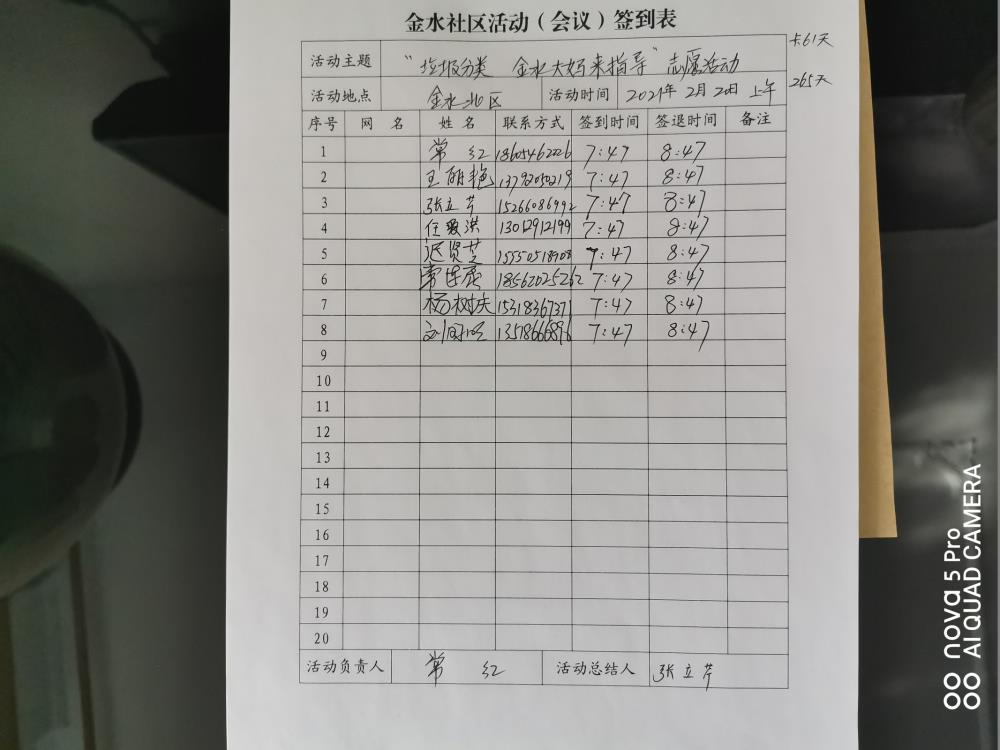 金水社区活动(会议)签到表
活动主题 "垃圾分类 金水大妈来指导"志愿活动
61天
活动地点 金水北区 活动时间 2021年2月2日 上午
265天
序号 网 名 姓 名 联系方式 签到时间 签退时间 备注
1 常 红 18605462226 7:47 8:47
2 王丽艳 13792050219 7:47 8:47
3 张立芹 15266086992 7:47 8:47
4 任爱洪 13012912199 7:47 8:47
5 迟贤芝 15550518908 7:47 8:47
6 18562025262 7:47 8:47
7 杨树庆 15318367371 7:47 8:47
8 13518666896 7:47 8:47
9
10
11
12
13
14
15
16
17
18
19
20
活动负责人 常 红 活动总结人 张立芹
nova 5 Pro
AI QUAD CAMERA